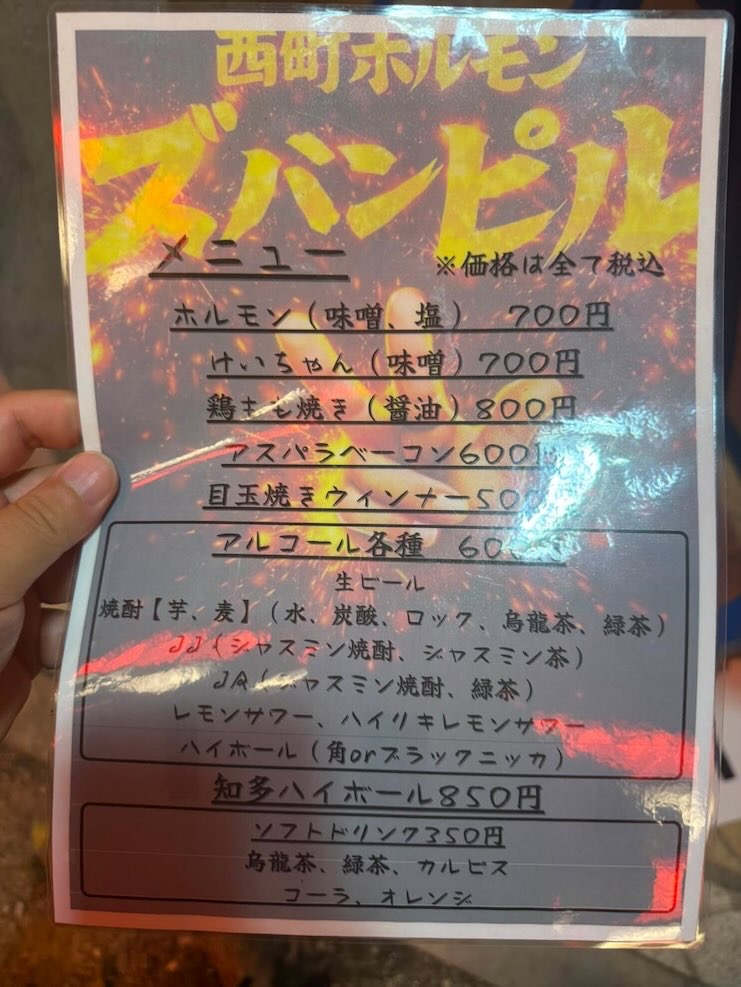 西町ホルモン
ズバンピル
メニュー
※価格は全て税込
ホルモン（味噌、塩） 700円
けいちゃん（味噌）700円
鶏もも焼き（醤油）800円
アスパラベーコン600円
目玉焼きウィンナー500
アルコール各種 600
生ビール
焼酎【芋、麦】（水、炭酸、ロック、烏龍茶、緑茶）
JJ（ジャスミン焼酎、ジャスミン茶）
JR（ジャスミン焼酎、緑茶）
レモンサワー、ハイリキレモンサワー
ハイボール（角orブラックニッカ）
知多ハイボール850円
ソフトドリンク350円
烏龍茶、緑茶、カルピス
コーラ、オレンジ